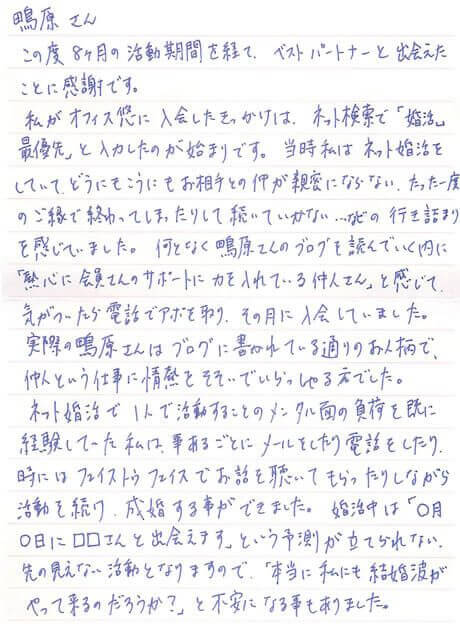 鴨原さん
この度8ヶ月の活動期間を経て、ベストパートナーと出会えた
ことに感謝です。
私がオフィス悠に入会したきっかけは、ネット検索で「婚活」
最優先」と入力したのが始まりです。当時私はネット婚活を
していて、どうにもこうにもお相手との仲が親密にならない、たった一度
のご縁で終わってしまったりして続いていかない…などの行き詰まり
を感じていました。何となく鴨原さんのブログを読んでいく内に
「熱心に会員さんのサポートに力を入れている仲人さん」と感じて、
気がついたら電話でアポを取り、その月に入会していました。
実際の鴨原さんはブログに書かれている通りのお人柄で、
仲人という仕事に情熱をそそいでいらっしゃる方でした。
ネット婚活で1人で活動することのメンタル面の負荷を既に
経験していた私は、事あるごとにメールをしたり電話をしたり、
時にはフェイストゥフェイスでお話を聴いてもらったりしながら
活動を続け、成婚する事ができました。婚活中は「〇月
〇日に□□さんと出会えます」という予測が立てられない、
先の見えない活動となりますので、「本当に私にも結婚波が
やって来るのだろうか?」と不安になる事もありました。